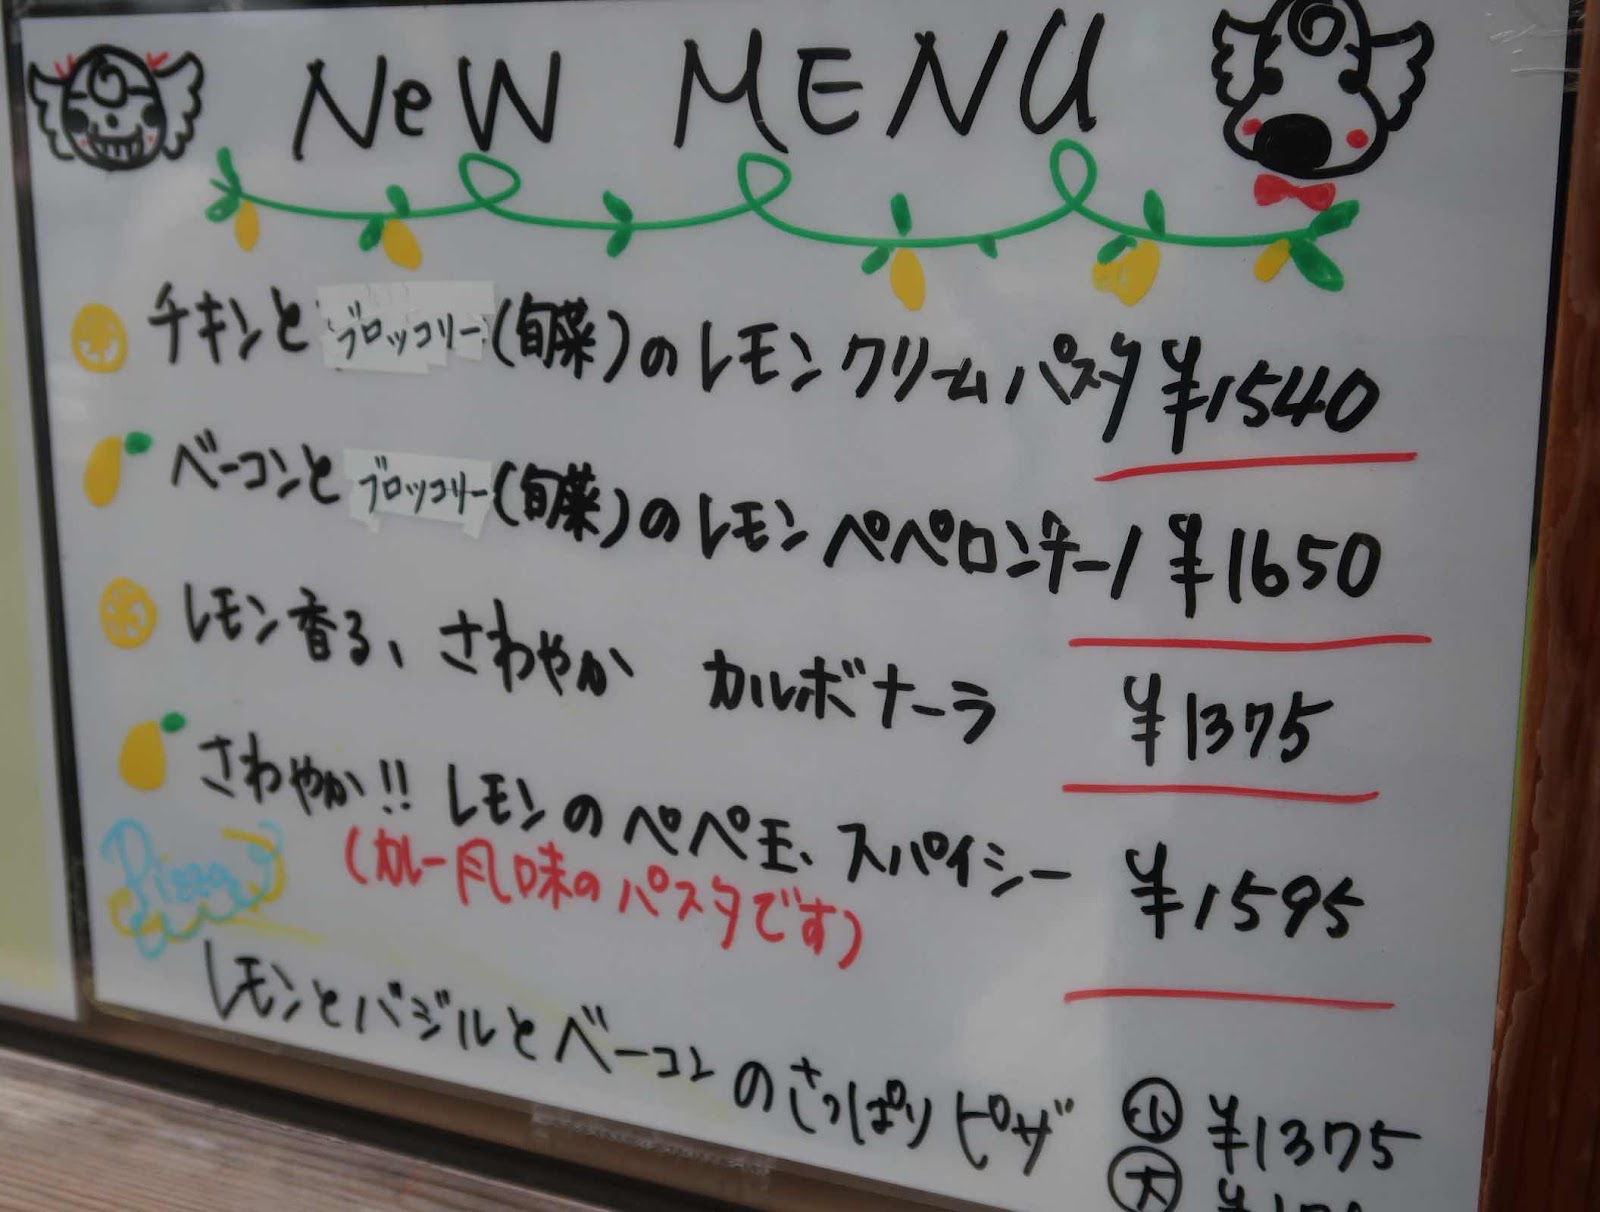 NeW MENU
チキンとブロッコリー(旬菜)のレモンクリームパスタ ¥1540
ベーコンとブロッコリー(旬菜)のレモンペペロンチーノ ¥1650
レモン香る、さわやか カルボナーラ ¥1375
さわやか!! レモンのペペ玉、スパイシー ¥1595
(カレー風味のパスタです)
Pizza
レモンとバジルとベーコンのさっぱりピザ 小 ¥1375
大